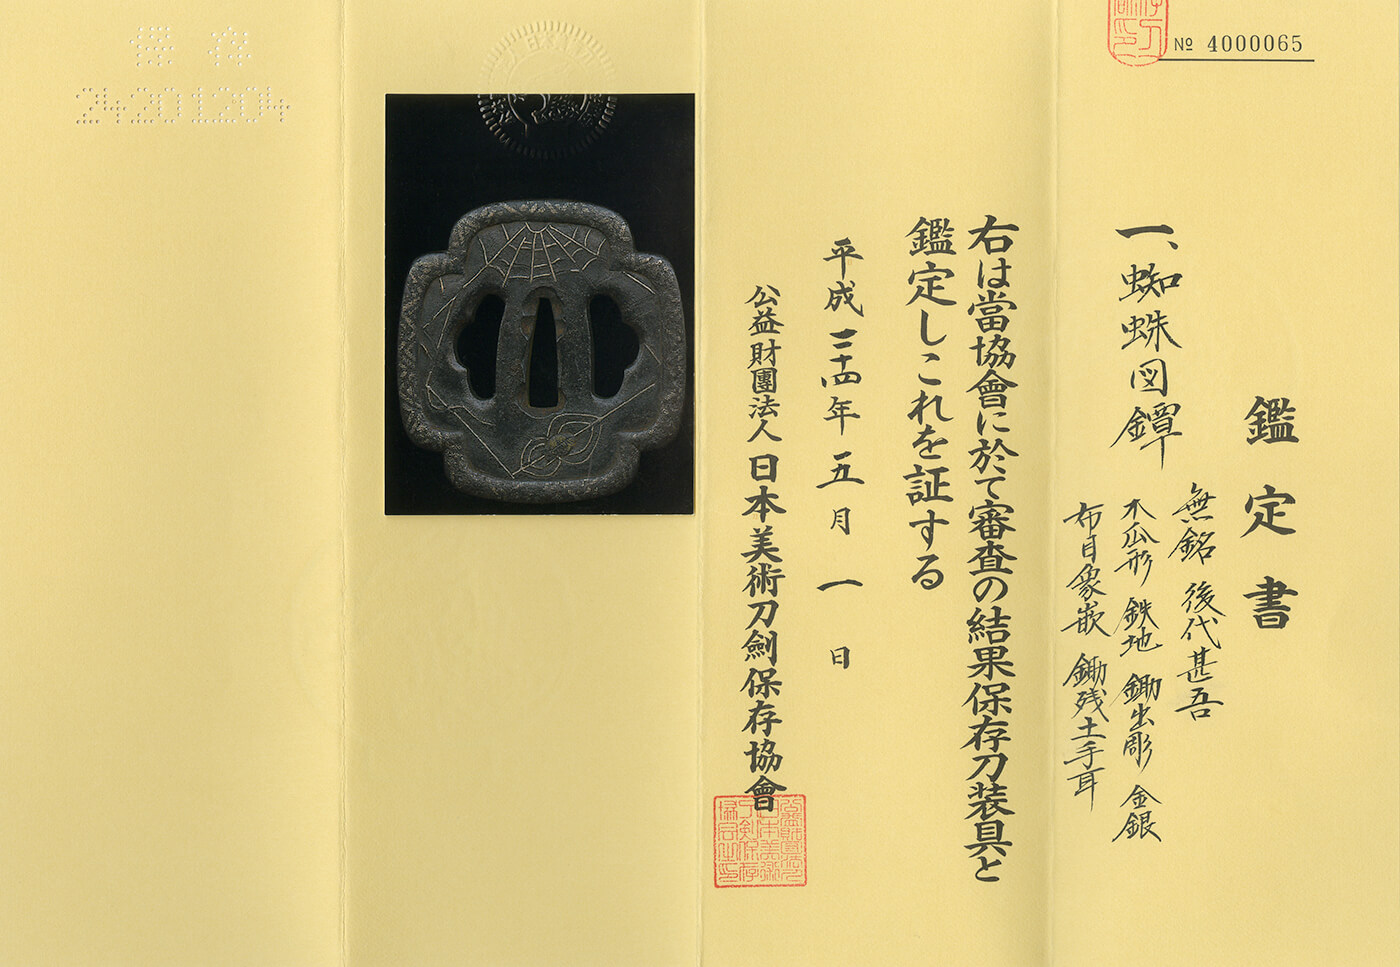 № 4000065
鑑定書
一、蜘蛛図鐔
無銘 後代甚吾
木瓜形 鉄地 鋤出彫 金銀
布目象嵌 鋤残土手耳
右は當協會に於て審査の結果保存刀装具と
鑑定しこれを証する
平成二十四年五月一日
公益財團法人日本美術刀劍保存協會
保存
24201204